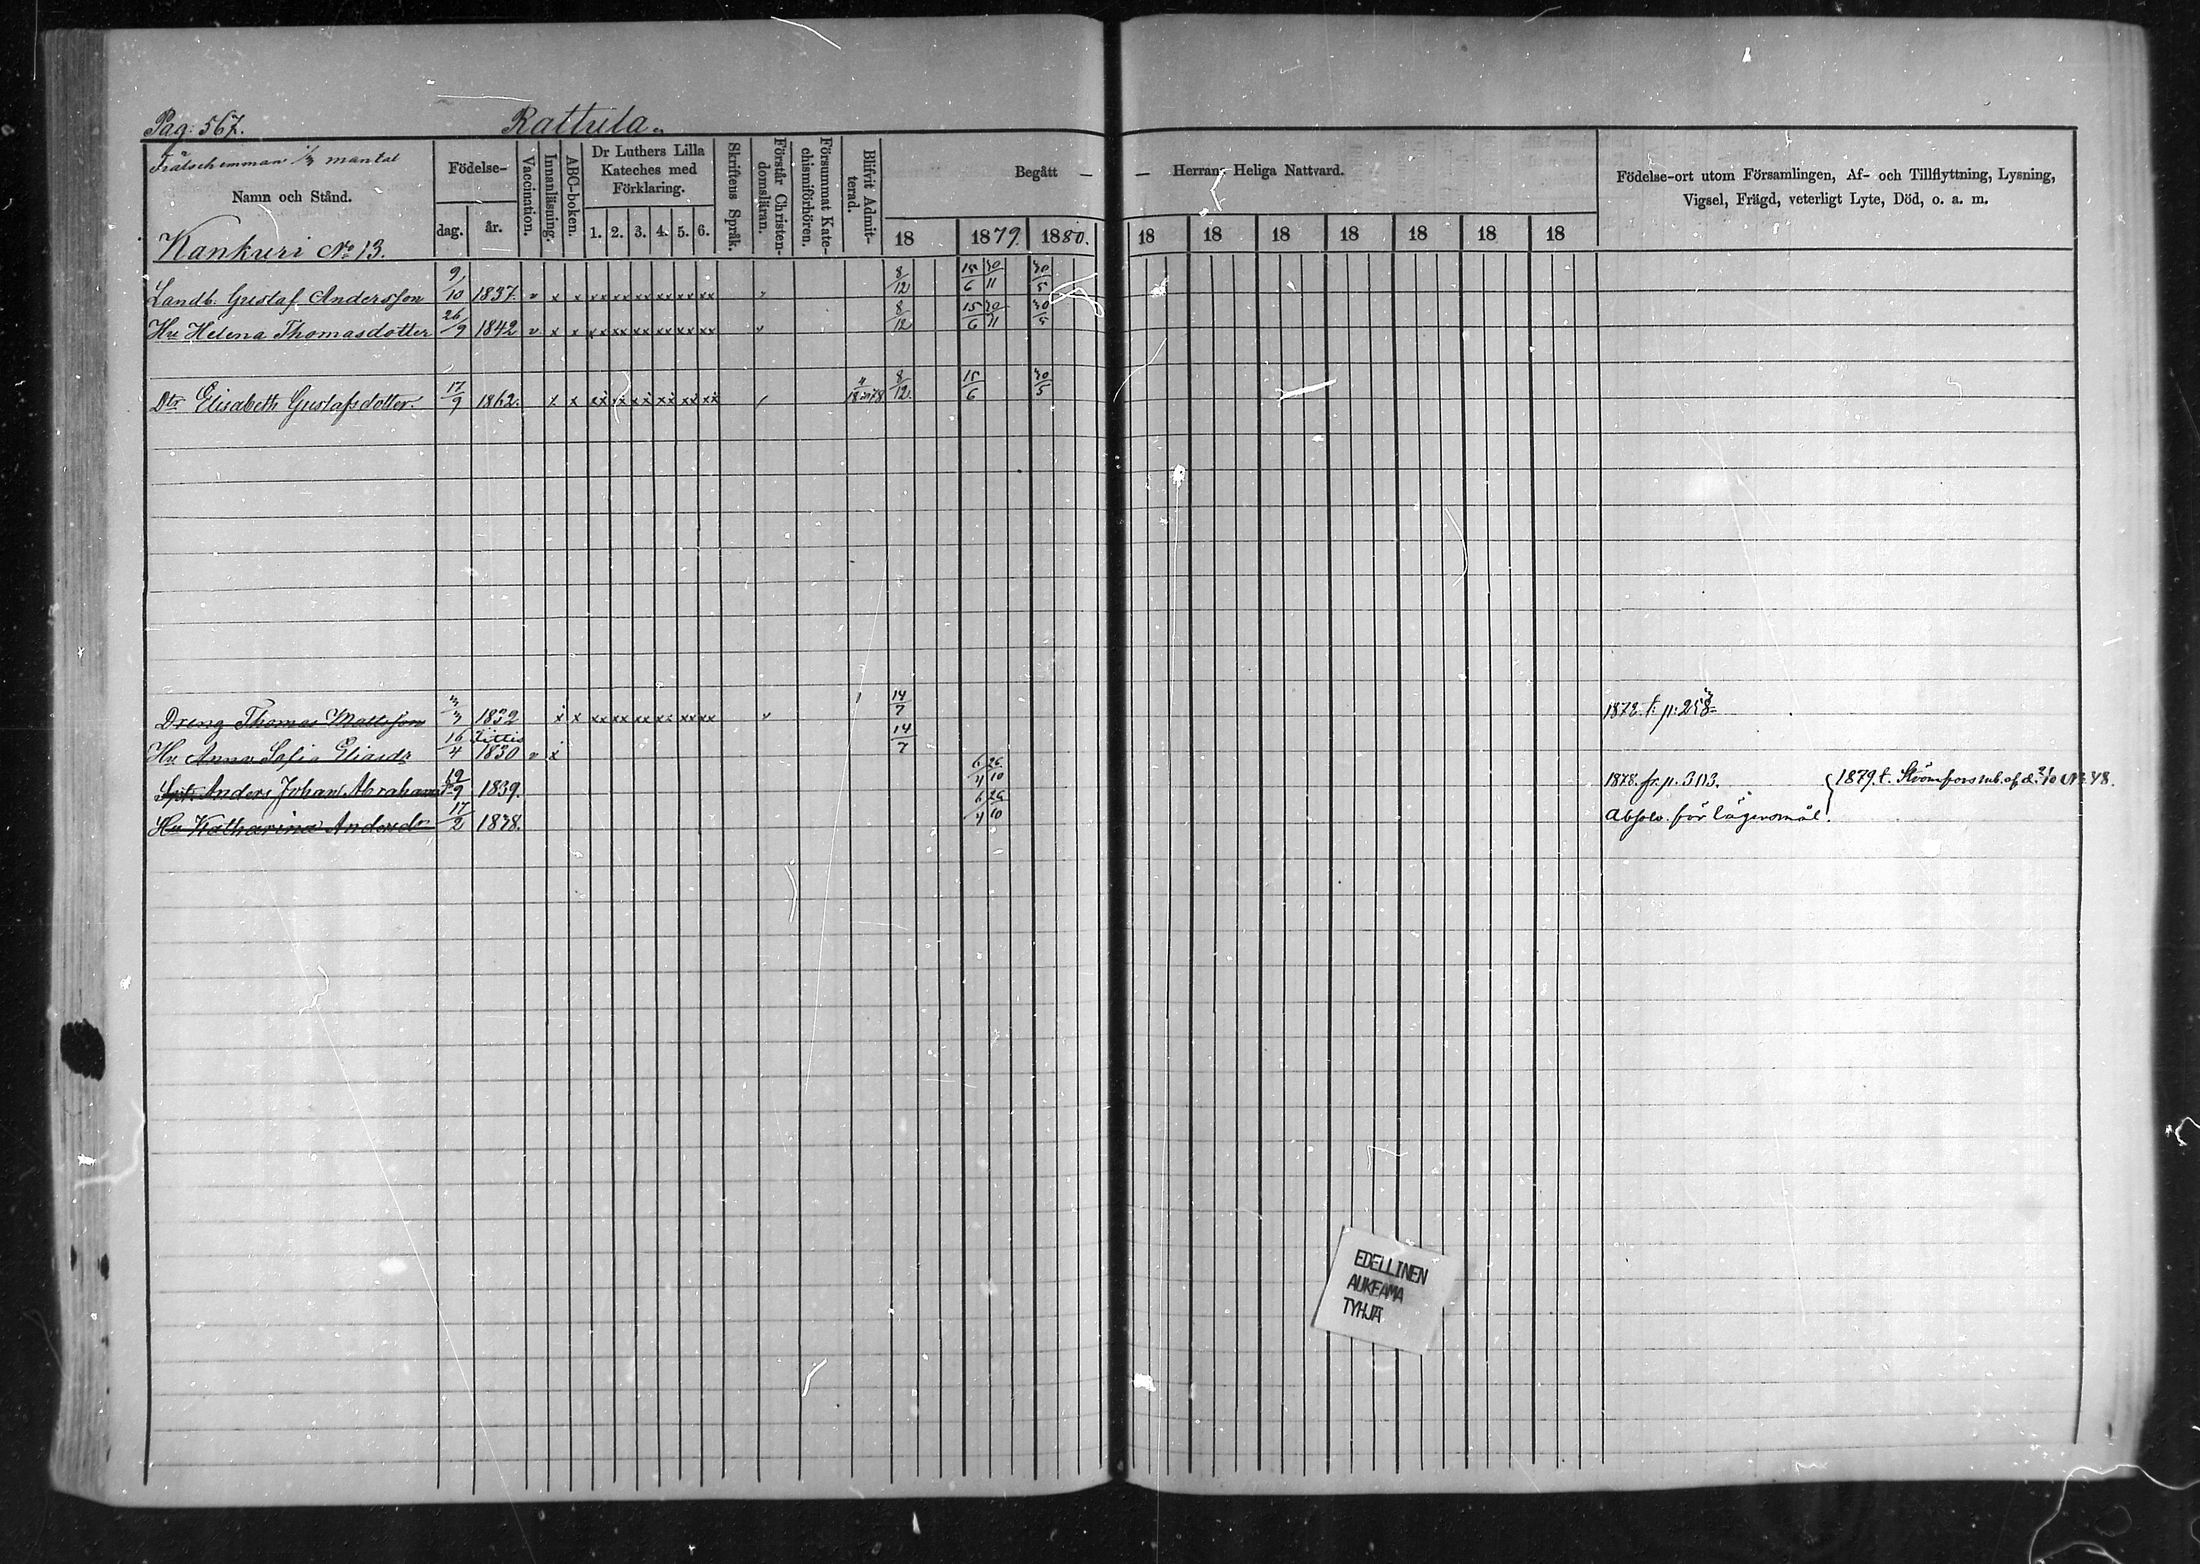 Pag: 567.
Rattula.
Frälsehemman 1/3 mantal
Namn och Stånd.
Kankuri No 13.
Födelse-
dag. år.
Vaccination.
Innanläsning.
ABC-boken.
Dr Luthers Lilla
Kateches med
Förklaring.
1. 2. 3. 4. 5. 6.
Skriftens Språk.
Förstår Christen-
domsläran.
Försummat Kate-
chismiförhören.
Blifvit Admit-
terad.
Begått — — Herrans Heliga Nattvard.
18 1879. 1880. 18 18 18 18 18 18 18
Födelse-ort utom Församlingen, Af- och Tillflyttning, Lysning,
Vigsel, Frägd, veterligt Lyte, Död, o. a. m.
Landb. Gustaf Andersson 9/10 1837. v x x xx xx xx xx xx xx v 8/12 15/6 30/11 30/5
Hu Helena Thomasdotter 26/9 1842 v x x xx xx xx xx xx xx v 8/12 15/6 30/11 30/5
Dtr Elisabeth Gustafsdotter. 17/9 1862. x x xx xx xx xx xx xx 8/12 15/6 30/5
Dreng Thomas Mattsson 1832 x x xx xx xx xx xx xx v 14/7 1878 t. p. 258
Hu Anna Sofia Eliasdr 16/4 Pittis 1830 v x 14/7
Anders Johan Abrahams 19/9 1839. 6/4 26/10 1878. fr. p. 303. 1879 t. Strömfors
Hu Katharina Andersdr 17/2 1838. 6/4 26/10 Absolv. för lägersmål.
EDELLINEN
AUKEAMA
TYHJÄ